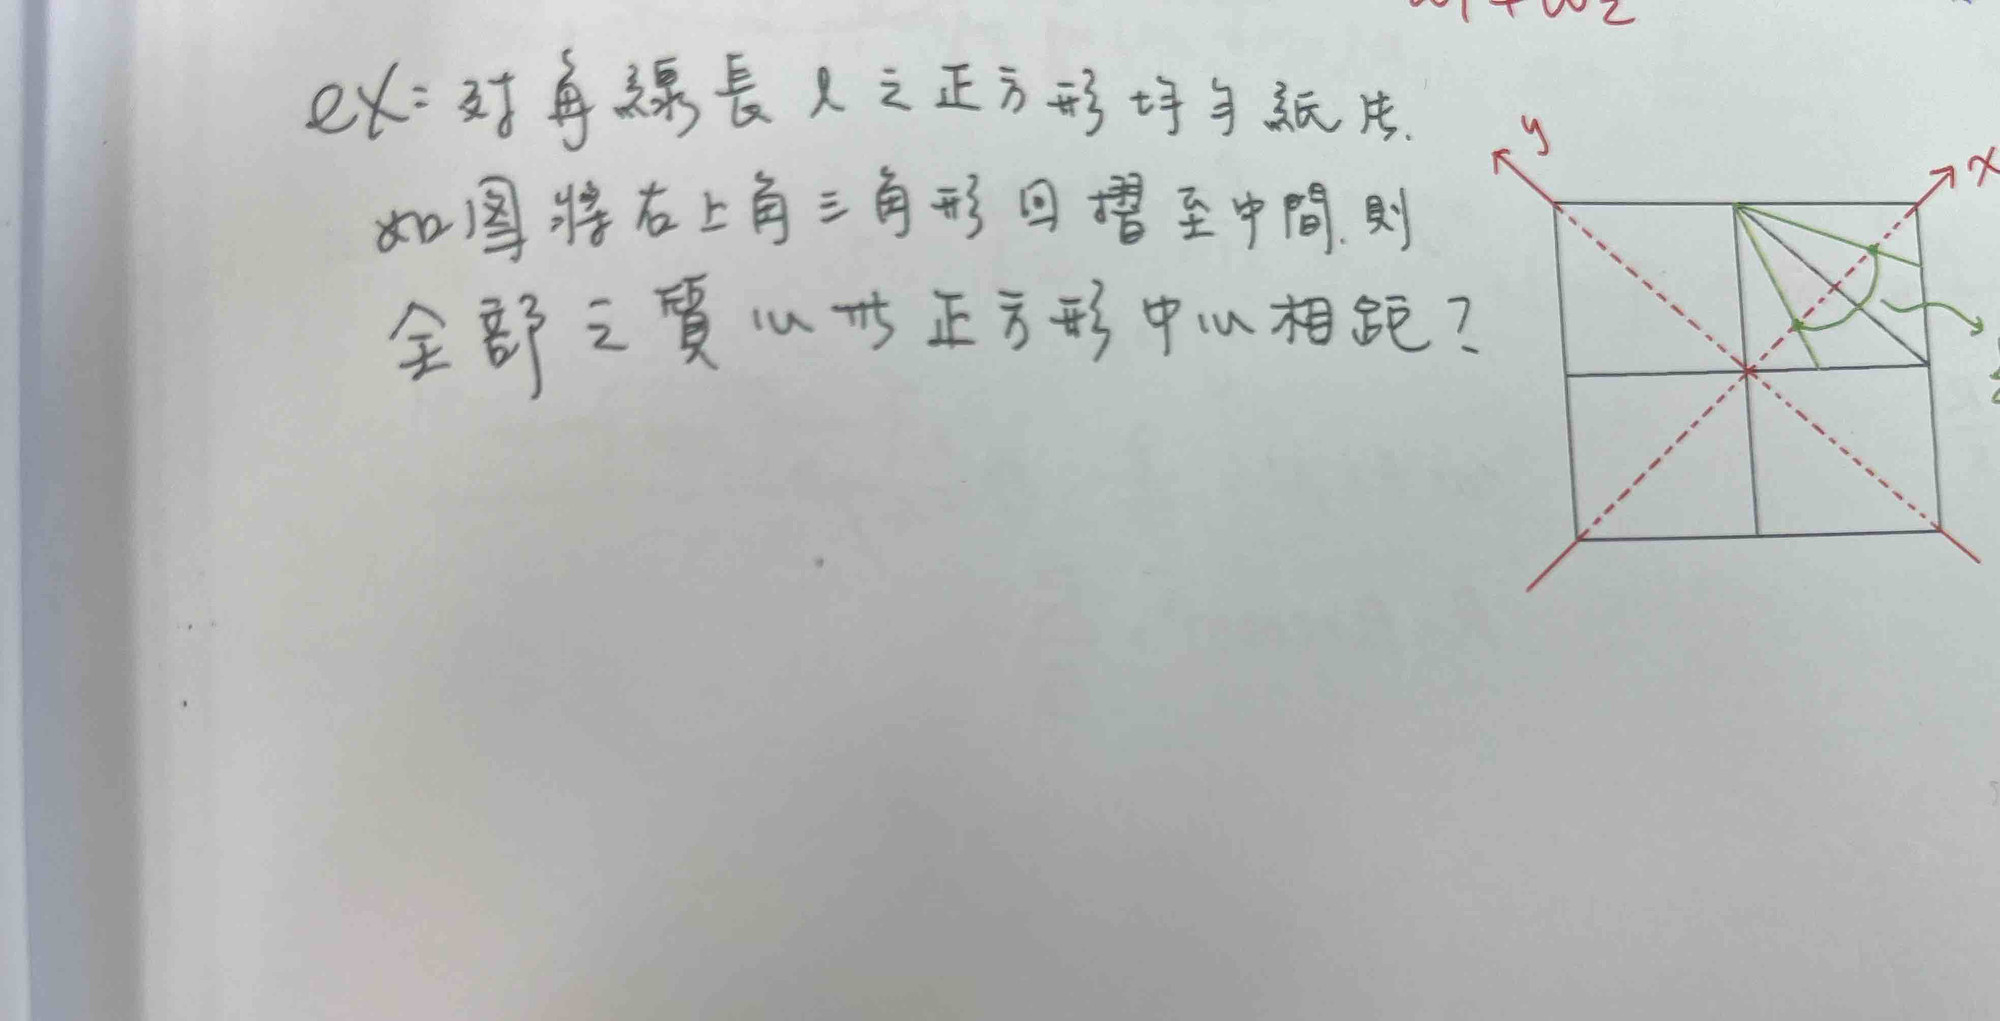 w₁+w₂
ex=对角線長 l 之正方形均勻紙片.
如图將右上角三角形回摺至中間.則
全部之質心与正方形中心相距?
y
x